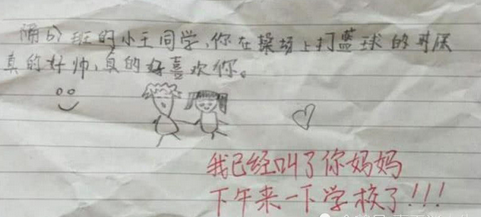 隔办班的小王同学,你在操场上打蓝球的时候
真的好帅,真的好喜欢你。
我已经叫了你妈妈
下午来一下学校了!!!